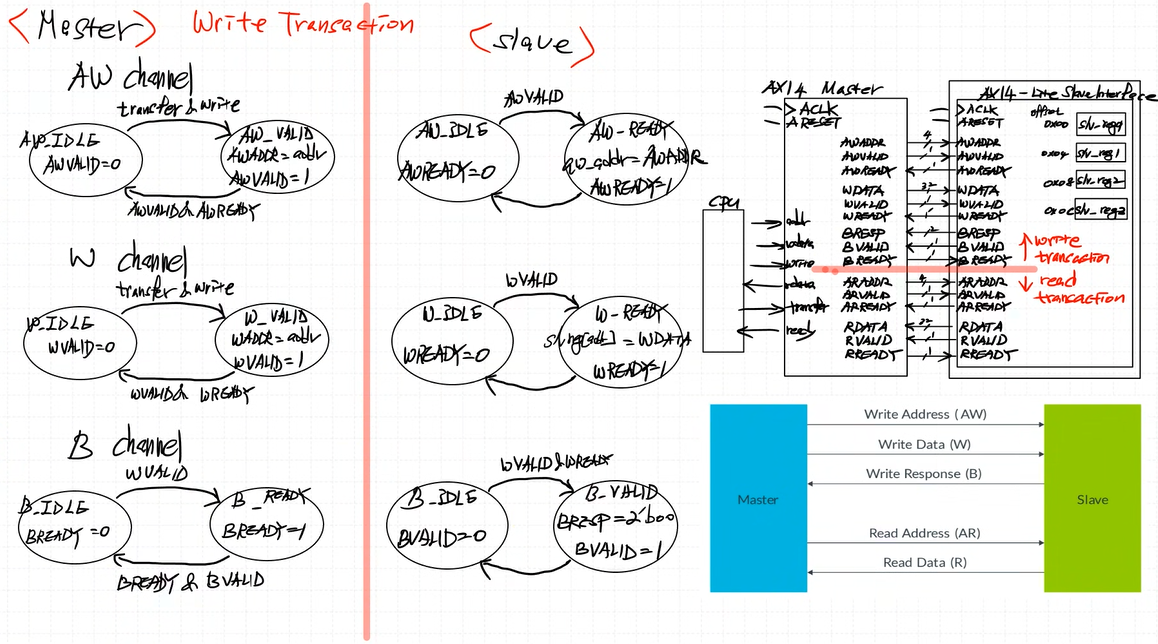 <Master> Write Transaction
<slave>
AW channel
transfer & write
AW_IDLE
AWVALID=0
AW_VALID
AWADDR=addr
AWVALID=1
AWVALID & AWREADY
W channel
transfer & write
W_IDLE
WVALID=0
W_VALID
WADDR=addr
WVALID=1
WVALID & WREADY
B channel
WVALID
B_IDLE
BREADY=0
B_READY
BREADY=1
BREADY & BVALID
AWVALID
AW_IDLE
AWREADY=0
AW-READY
aw_addr=AWADDR
AWREADY=1
WVALID
W_IDLE
WREADY=0
W-READY
= WDATA
WREADY=1
WVALID & WREADY
B_IDLE
BVALID=0
B_VALID
BRESP=2'b00
BVALID=1
CPU
addr
wdata
write
rdata
transfer
ready
AXI4 Master
ACLK
ARESET
AWADDR
AWVALID
AWREADY
WDATA
WVALID
WREADY
BRESP
BVALID
BREADY
ARADDR
ARVALID
ARREADY
RDATA
RVALID
RREADY
4
1
1
32
1
1
2
1
1
4
1
1
32
1
1
AXI4-Lite Slave Interface
ACLK
ARESET
AWADDR
AWVALID
AWREADY
WDATA
WVALID
WREADY
BRESP
BVALID
BREADY
ARADDR
ARVALID
ARREADY
RDATA
RVALID
RREADY
offset
0x00 slv_reg0
0x04 slv_reg1
0x08 slv_reg2
0x0C slv_reg3
↑ write
transaction
↓ read
transaction
Master
Write Address (AW)
Write Data (W)
Write Response (B)
Read Address (AR)
Read Data (R)
Slave